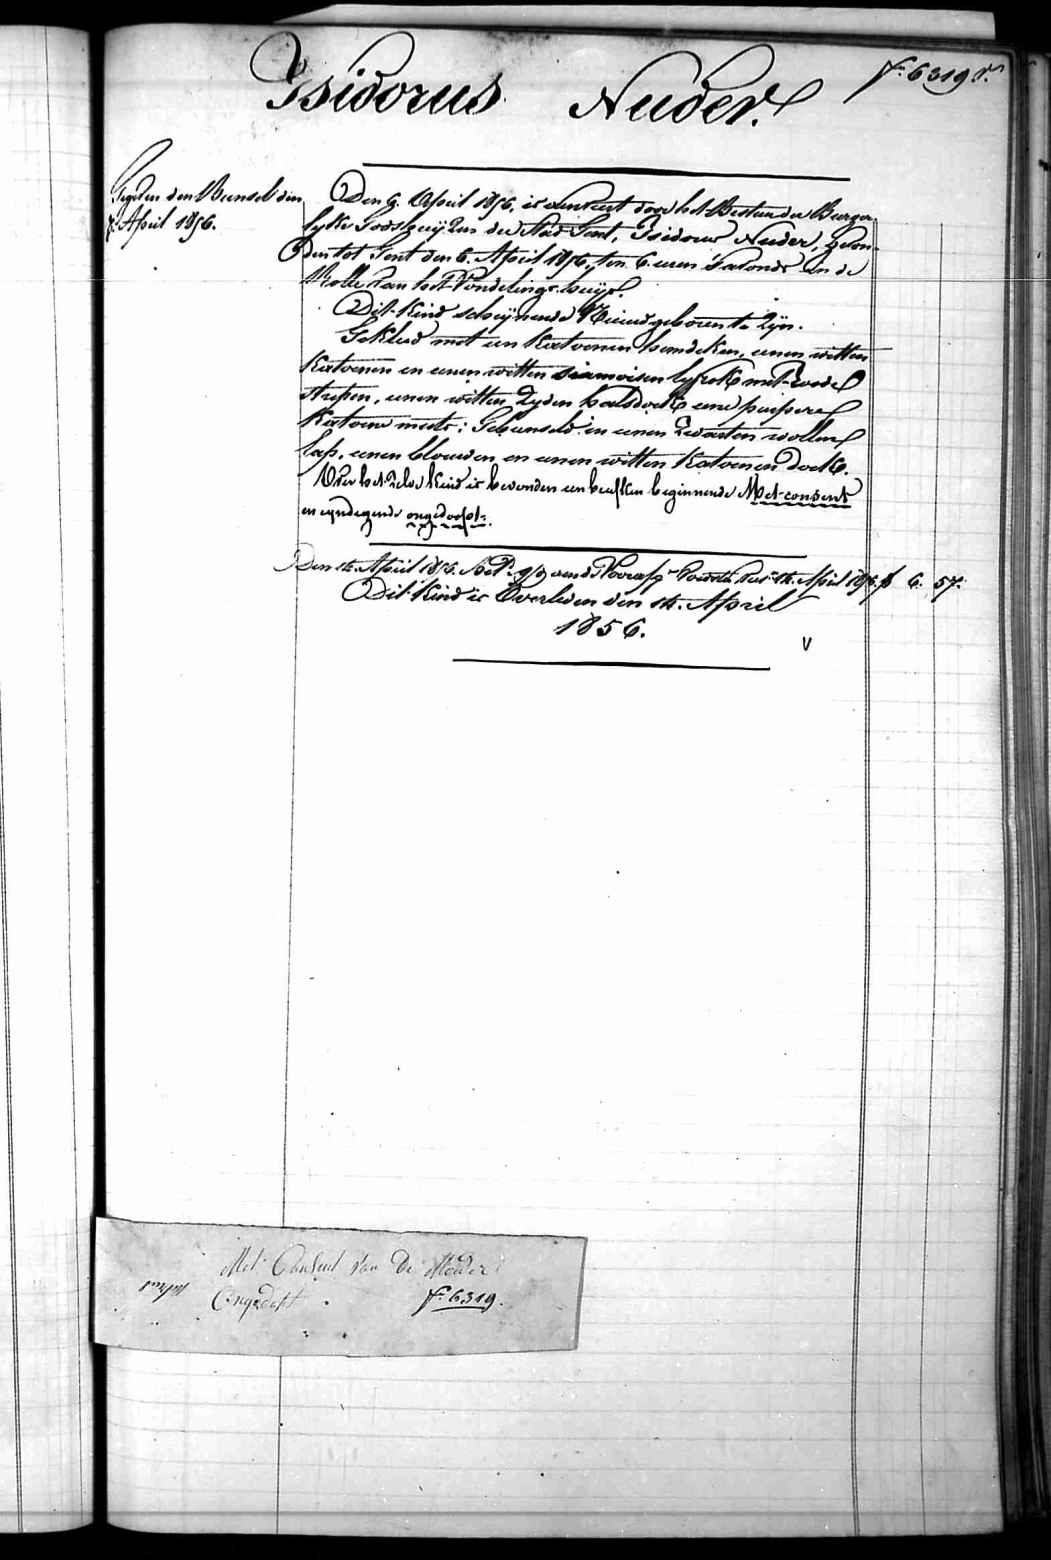 fo. 6319 Vo.
Isidorus Nuder.
den
7. April 1856.
Den 6. April 1856. is aenveert door het Bestuur der Burger-
lyke Godshuyzen der Stad Gent, Isidorus Nuder, gevon-
den tot Gent den 6. April 1856, ten 6. uren s'avonds in de
Rolle van het Vondelings-huys.
Dit Kind schynende Nieuwgeboren te zyn.
Gekleed met een Katoenen hemdeken, eenen witten
Katoenen en eenen witten siamoisen lyfrok met roode
strepen, eenen witten zyden halsdoek eene purpere
Katoene muts: Gebunseld in eenen Zwarten wollen
lap, eenen blauwen en eenen witten Katoenen doek.
Over het zelve Kind is bevonden een briefken beginnende Met consent
en eyndegende ongedoopt.
Den 14. April 1856. 14. April 1856 f 6. 57.
Dit Kind is Overleden den 14. April
1856.
V
Met Consent van De Moeder
Ongedopt fo. 6319.